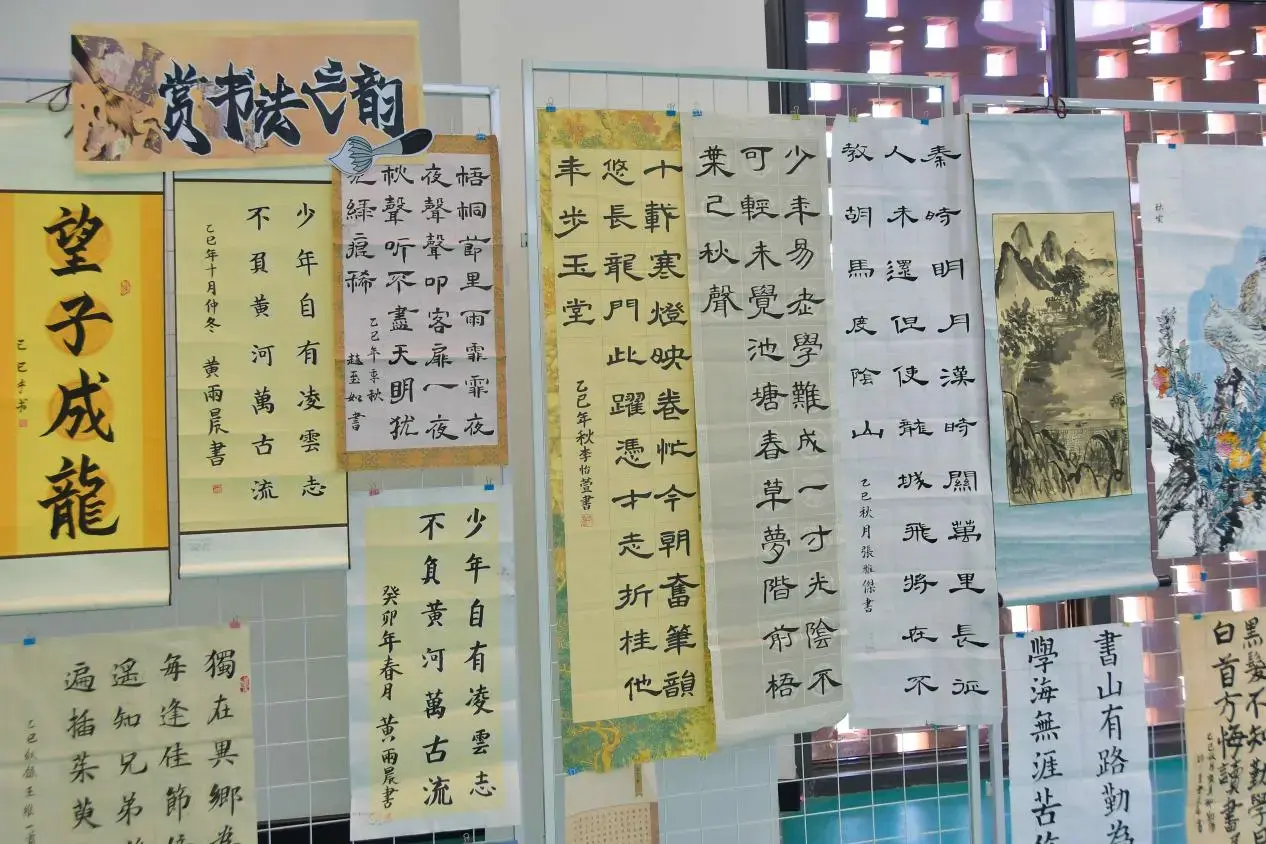 赏书法之韵
望子成龍
乙巳年书
少年自有凌雲志
不負黄河萬古流
乙巳年十月仲冬 黄雨晨書
梧桐節里雨霏霏夜
夜聲聲叩客扉一夜
秋聲听不盡天明犹
緑痕稀
乙巳年季秋
趙至如書
少年自有凌雲志
不負黄河萬古流
癸卯年春月 黄雨晨書
獨在異鄉為
每逢佳節倍
遥知兄弟
遍插茱萸
乙巳秋録王維一首
十載寒燈映卷忙今朝奮筆韻
悠長龍門此躍憑才志折桂他
年步玉堂
乙巳年秋李怡萱書
少年易老學難成一寸光陰不
可輕未覺池塘春草夢階前梧
葉已秋聲
秦時明月漢時關萬里長征
人未還但使龍城飛將在不
教胡馬度陰山
乙巳秋月張雅傑書
秋實
書山有路勤為
學海無涯苦作
黑髮不知勤學早
白首方悔讀書